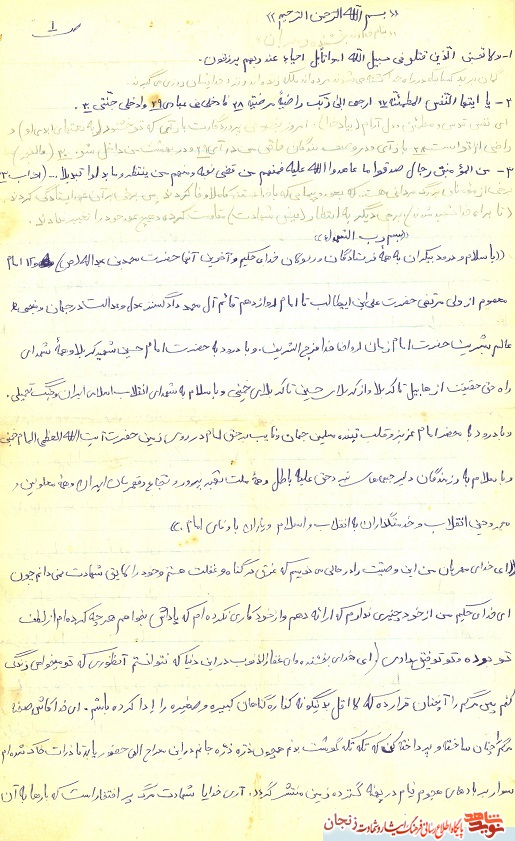 «بسم الله الرحمن الرحیم»
ص ۱
۱- ولا تحسبن الذین قتلو فی سبیل الله امواتا بل احیاء عند ربهم یرزقون.
۲- یا ایتها النفس المطمئنة ۲۷ ارجعی الی ربک راضیة مرضیة ۲۸ فادخلی فی عبادی ۲۹ وادخلی جنتی ۳۰
۳- من المؤمنین رجال صدقوا ما عاهدوا الله علیه فمنهم من قضی نحبه ومنهم من ینتظر وما بدلوا تبدیلا... (احزاب ۲۳
«بسم رب الشهداء»
((با سلام و درود بیکران به همهٔ فرستادگان و رسولان خدای حکیم و آخرین آنها حضرت محمد بن عبدالله (ص) امام
معصوم از ولی مرتضی حضرت علی ابن ابیطالب تا امام دوازدهم قائم آل محمد دادگستر عدل و عدالت در جهان و منجی
عالم بشریت حضرت امام زمان ارواحنا فدا فرجه الشریف. و با درود به حضرت امام حسین شهید کربلا و همهٔ شهدای
راه حق حقیقت از هابیل تا کربلا و از کربلای حسین تا کربلای خمینی و با سلام به شهدای انقلاب اسلامی ایران و جنگ تحمیلی.
و با درود به محضر امام عزیز و قلب تپنده مسلمین جهان و نایب بر حق امام در روی زمین حضرت آیت الله العظمی امام خمینی
و با سلام به رزمندگان دلیر جبهه‌های نبرد حق علیه باطل و همهٔ ملت شهید پرور و شجاع و قهرمان ایران و همهٔ معلولین و
مجروحین انقلاب و خدمتگذاران به انقلاب و اسلام و یاران باوفای امام.))
ای خدای مهربان من این وصیت را در حالی می نویسم که غرق در گناه و غفلت هستم و خود را لایق شهادت نمی دانم چون
ای خدای حکیم من از خود چیزی ندارم که ارائه دهم و از خود کاری نکرده ام که پاداش بخواهم هر چه کرده ام از لطف
تو بوده و تو توفیق دادی (ای خدای بخشنده و ای غفار الذنوب در این دنیا که نتوانستم آنطوری که تو میخواهی زندگی
کنم پس مرگم را آنچنان قرار ده که لااقل بدینگونه کفاره گناهان کبیره و صغیره را ادا کرده باشم. ای خدا کاش صحنه
مرگم را چنان ساخته و پرداخته کنی که تکه تکه گوشت بدنم همچون ذره ذره جانم در این معراج الهی حضور یابد تا ذرات خاک شده ام
سوار بر بادهای هجوم قیام در پهنه گسترده زمین منتشر گردد. آری خدایا شهادت مرگ پر افتخار است که بارها به آن
نوید شاهد
پایگاه اطلاع رسانی فرهنگ ایثار و شهادت زنجان